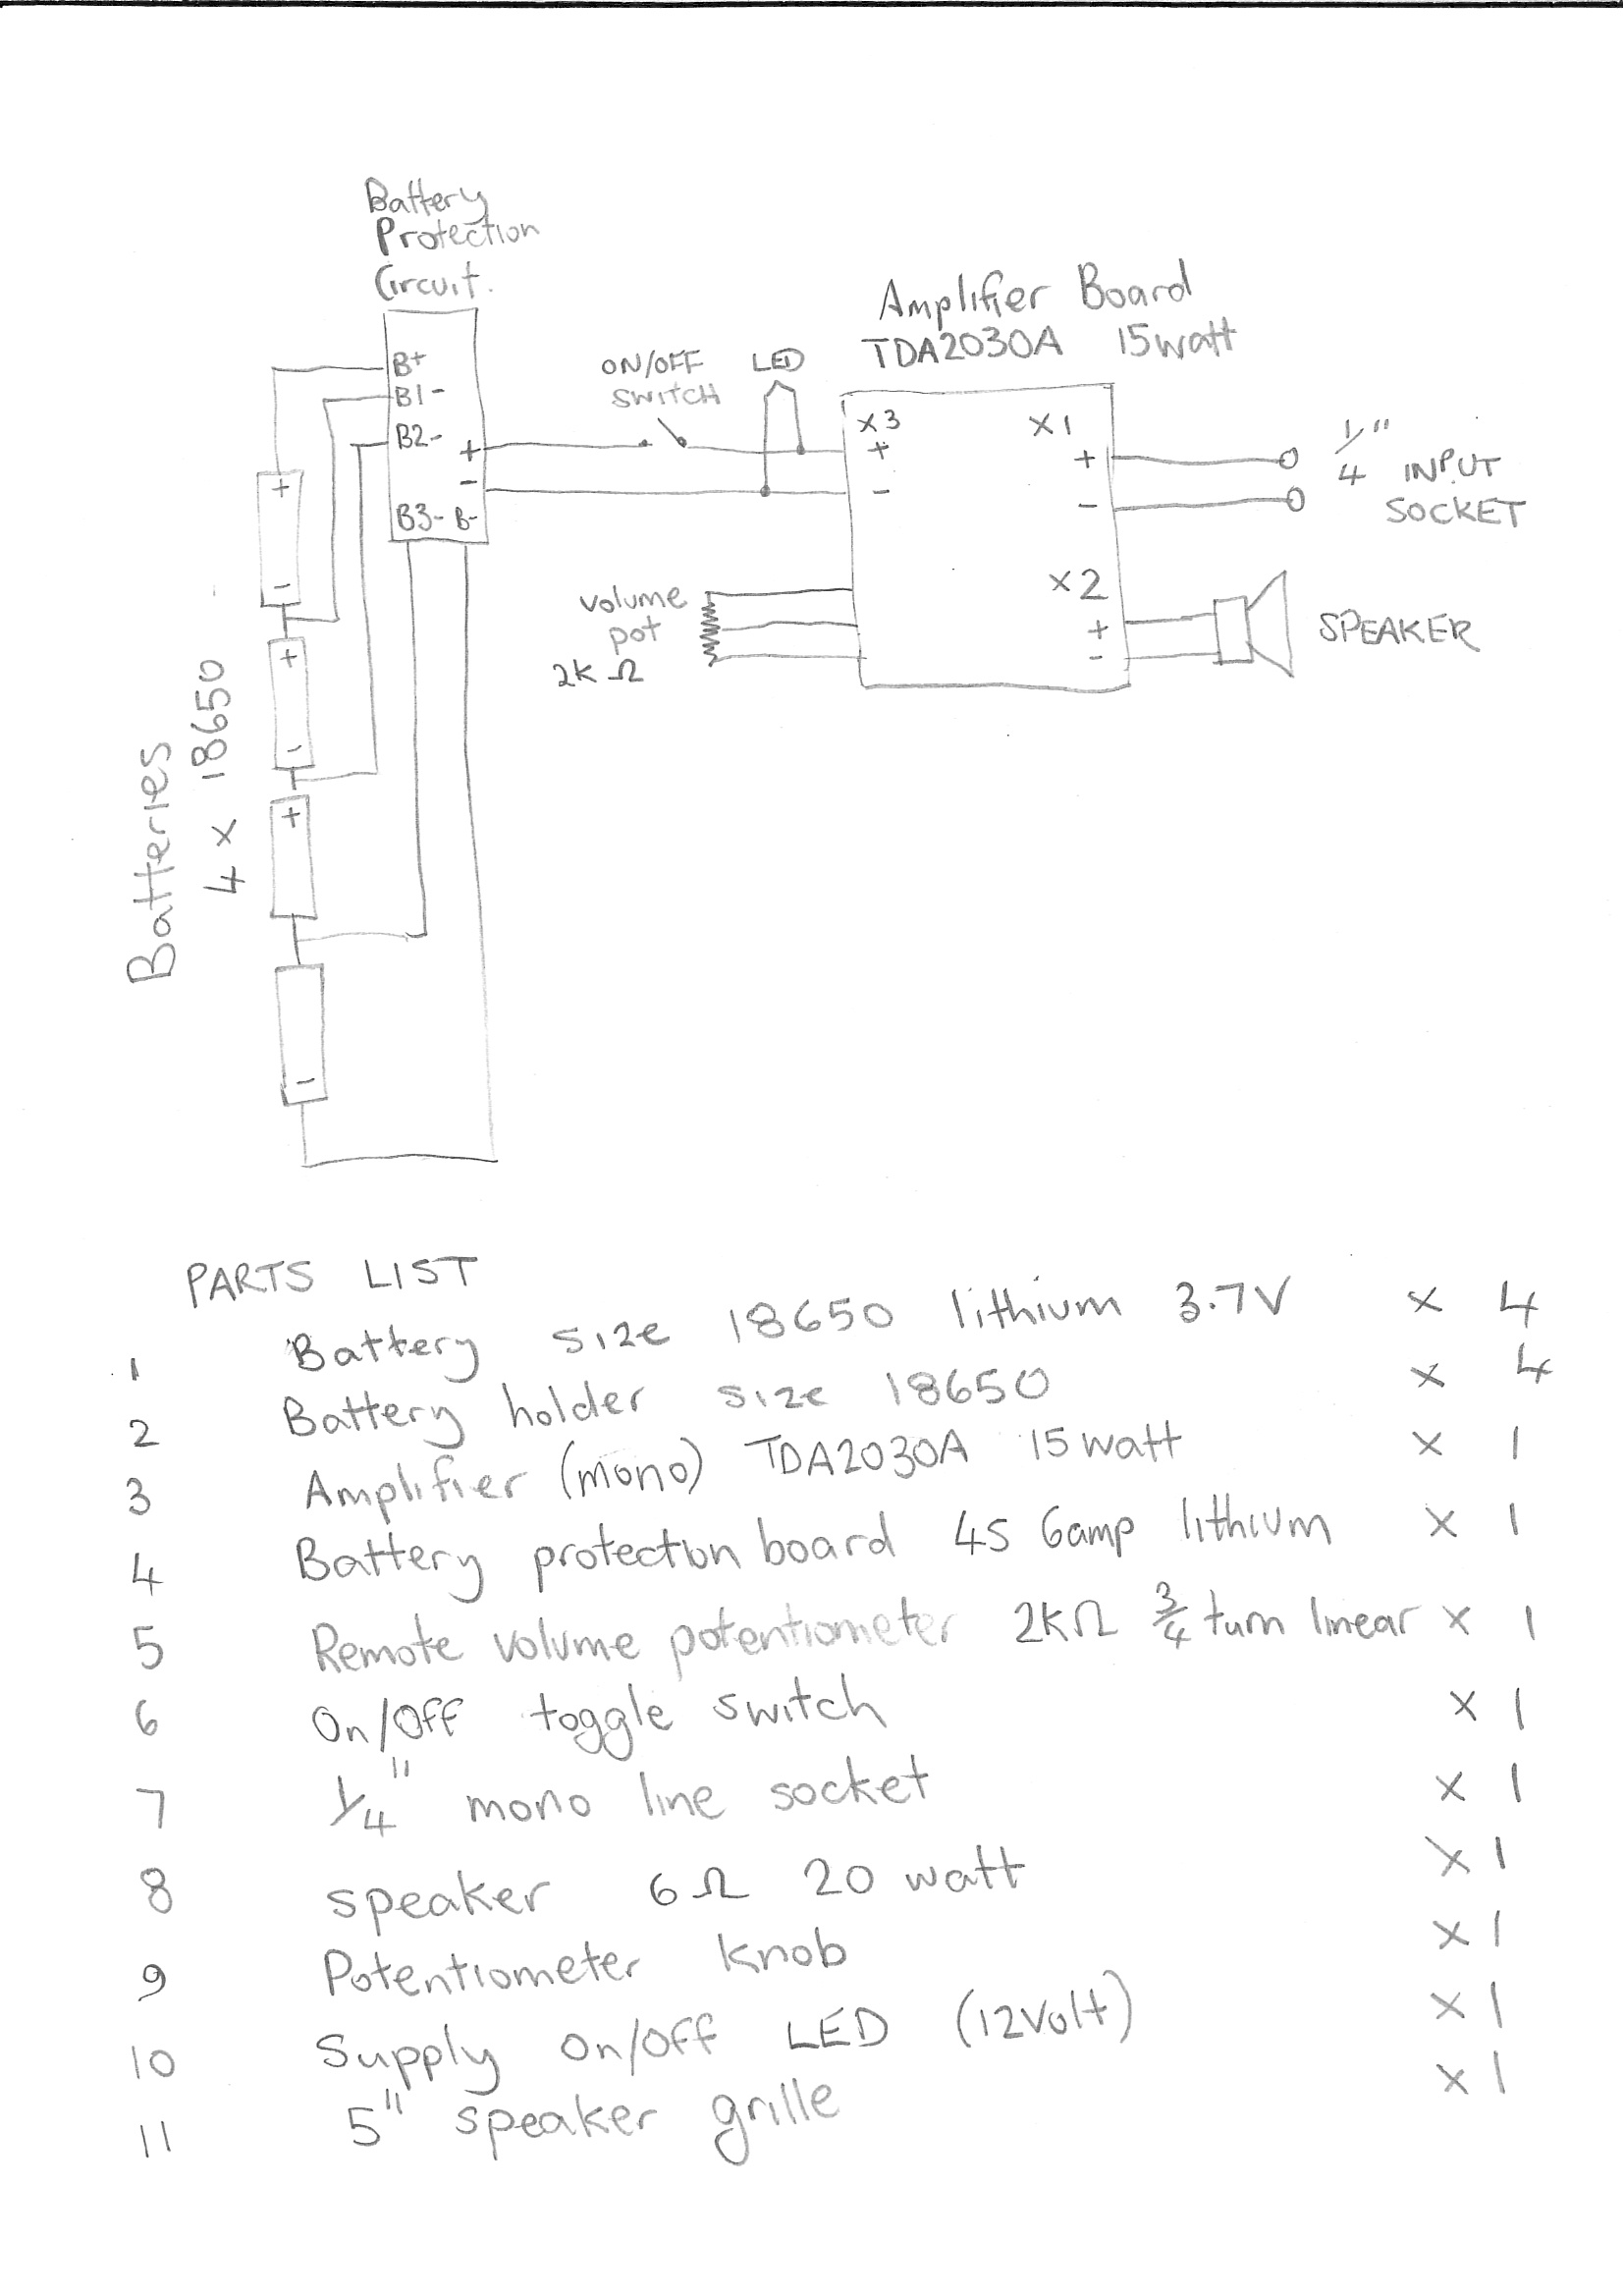 Battery
Protection
Circuit.
Amplifier Board
TDA2030A 15watt
ON/OFF
SWITCH
LED
B+
B1-
B2-
+
-
B3- B-
X3
+
-
X1
+
-
1/4" INPUT
SOCKET
X2
+
-
SPEAKER
volume
pot
2K Ω
+
-
+
-
+
-
Batteries
4 x 18650
PARTS LIST
1 Battery size 18650 lithium 3.7V x 4
2 Battery holder size 18650 x 4
3 Amplifier (mono) TDA2030A 15watt x 1
4 Battery protection board 4S 6amp lithium x 1
5 Remote volume potentiometer 2KΩ 3/4 turn linear x 1
6 On/Off toggle switch x 1
7 1/4" mono line socket x 1
8 speaker 6Ω 20 watt x 1
9 Potentiometer knob x 1
10 Supply On/Off LED (12Volt) x 1
11 5" speaker grille x 1